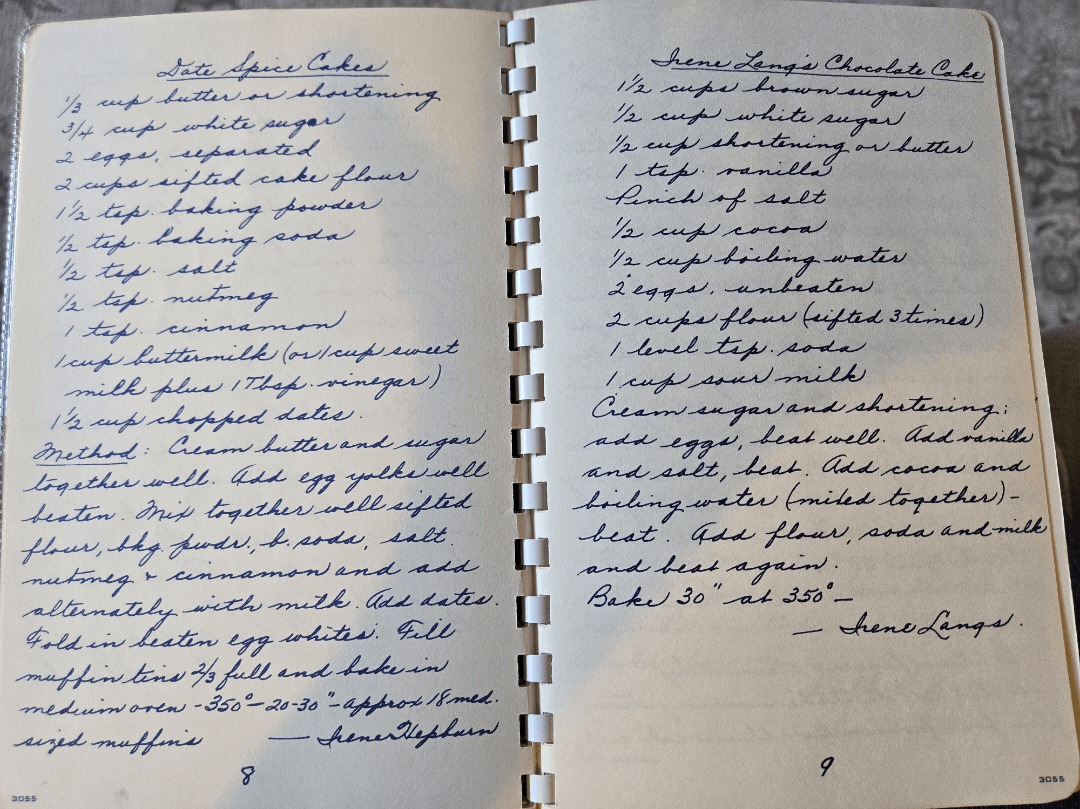 Date Spice Cakes
1/3 cup butter or shortening
3/4 cup white sugar
2 eggs, separated
2 cups sifted cake flour
1 1/2 tsp. baking powder
1/2 tsp. baking soda
1/2 tsp. salt
1/2 tsp. nutmeg
1 tsp. cinnamon
1 cup buttermilk (or 1 cup sweet
milk plus 1 Tbsp. vinegar)
1 1/2 cup chopped dates.
Method: Cream butter and sugar
together well. Add egg yolks well
beaten. Mix together well sifted
flour, bkg. pwdr., b. soda, salt.
nutmeg & cinnamon and add
alternately with milk. Add dates.
Fold in beaten egg whites. Fill
muffin tins 2/3 full and bake in
medium oven - 350° - 20-30" - approx 18 med.
sized muffins — Irene Hepburn
8
3055
Irene Lang's Chocolate Cake
1 1/2 cups brown sugar
1/2 cup white sugar
1/2 cup shortening or butter
1 tsp. vanilla
Pinch of salt
1/2 cup cocoa
1/2 cup boiling water
2 eggs, unbeaten
2 cups flour (sifted 3 times)
1 level tsp. soda
1 cup sour milk
Cream sugar and shortening;
add eggs, beat well. Add vanilla
and salt, beat. Add cocoa and
boiling water (mixed together) -
beat. Add flour, soda and milk
and beat again.
Bake 30" at 350° —
— Irene Langs.
9
3055